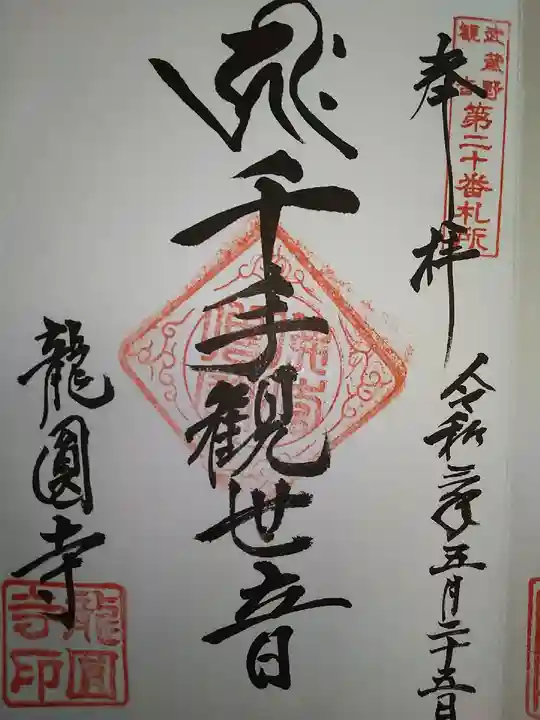 武蔵野
観音
第二十番札所
奉拝
令和二年五月二十五日
千手観世音
龍圓寺
龍圓
寺印